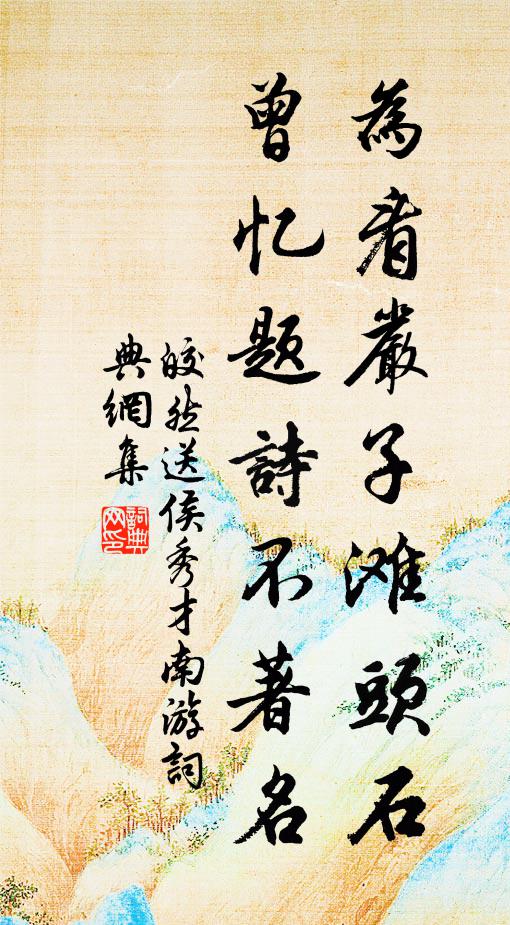 為看嚴子滩頭石
曾忆题詩不著名
皎然送侯秀才南游詞
典網集
詞典
网印